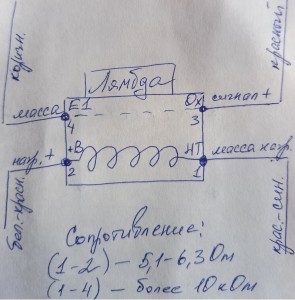 Лямбда
коричн.
красный
масса
E1
Ox
сигнал +
4
3
нагр. +
+B
HT
масса нагр.
2
1
бел.-красн.
крас.-син.
Сопротивление:
(1-2) – 5,1-6,3 Ом
(1-4) – более 10 кОм